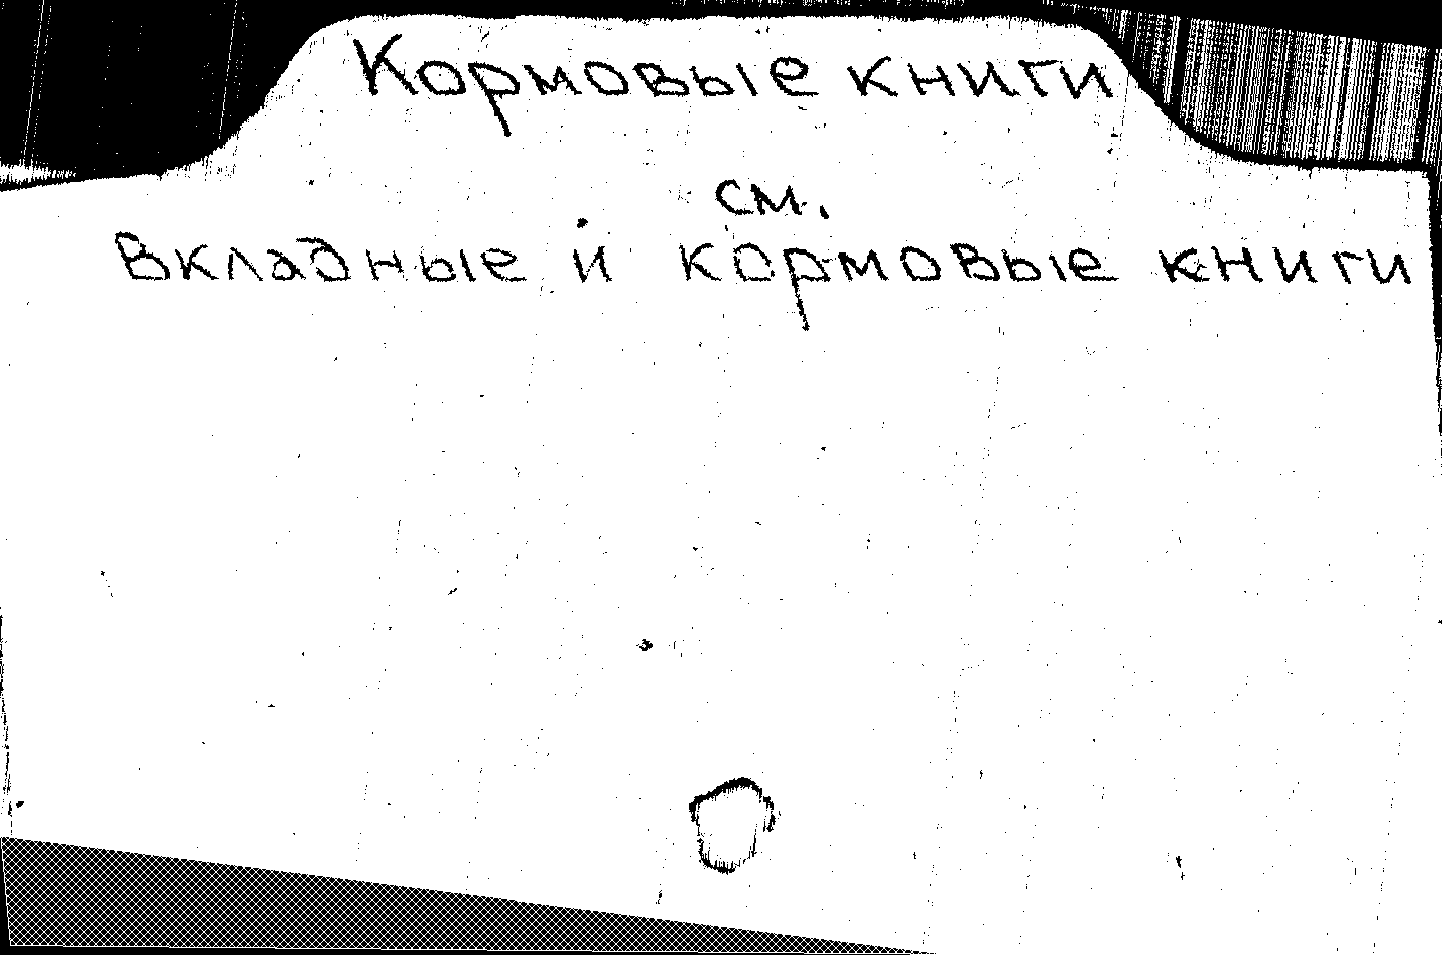 Кормовые книги
см.
Вкладные и кормовые книги